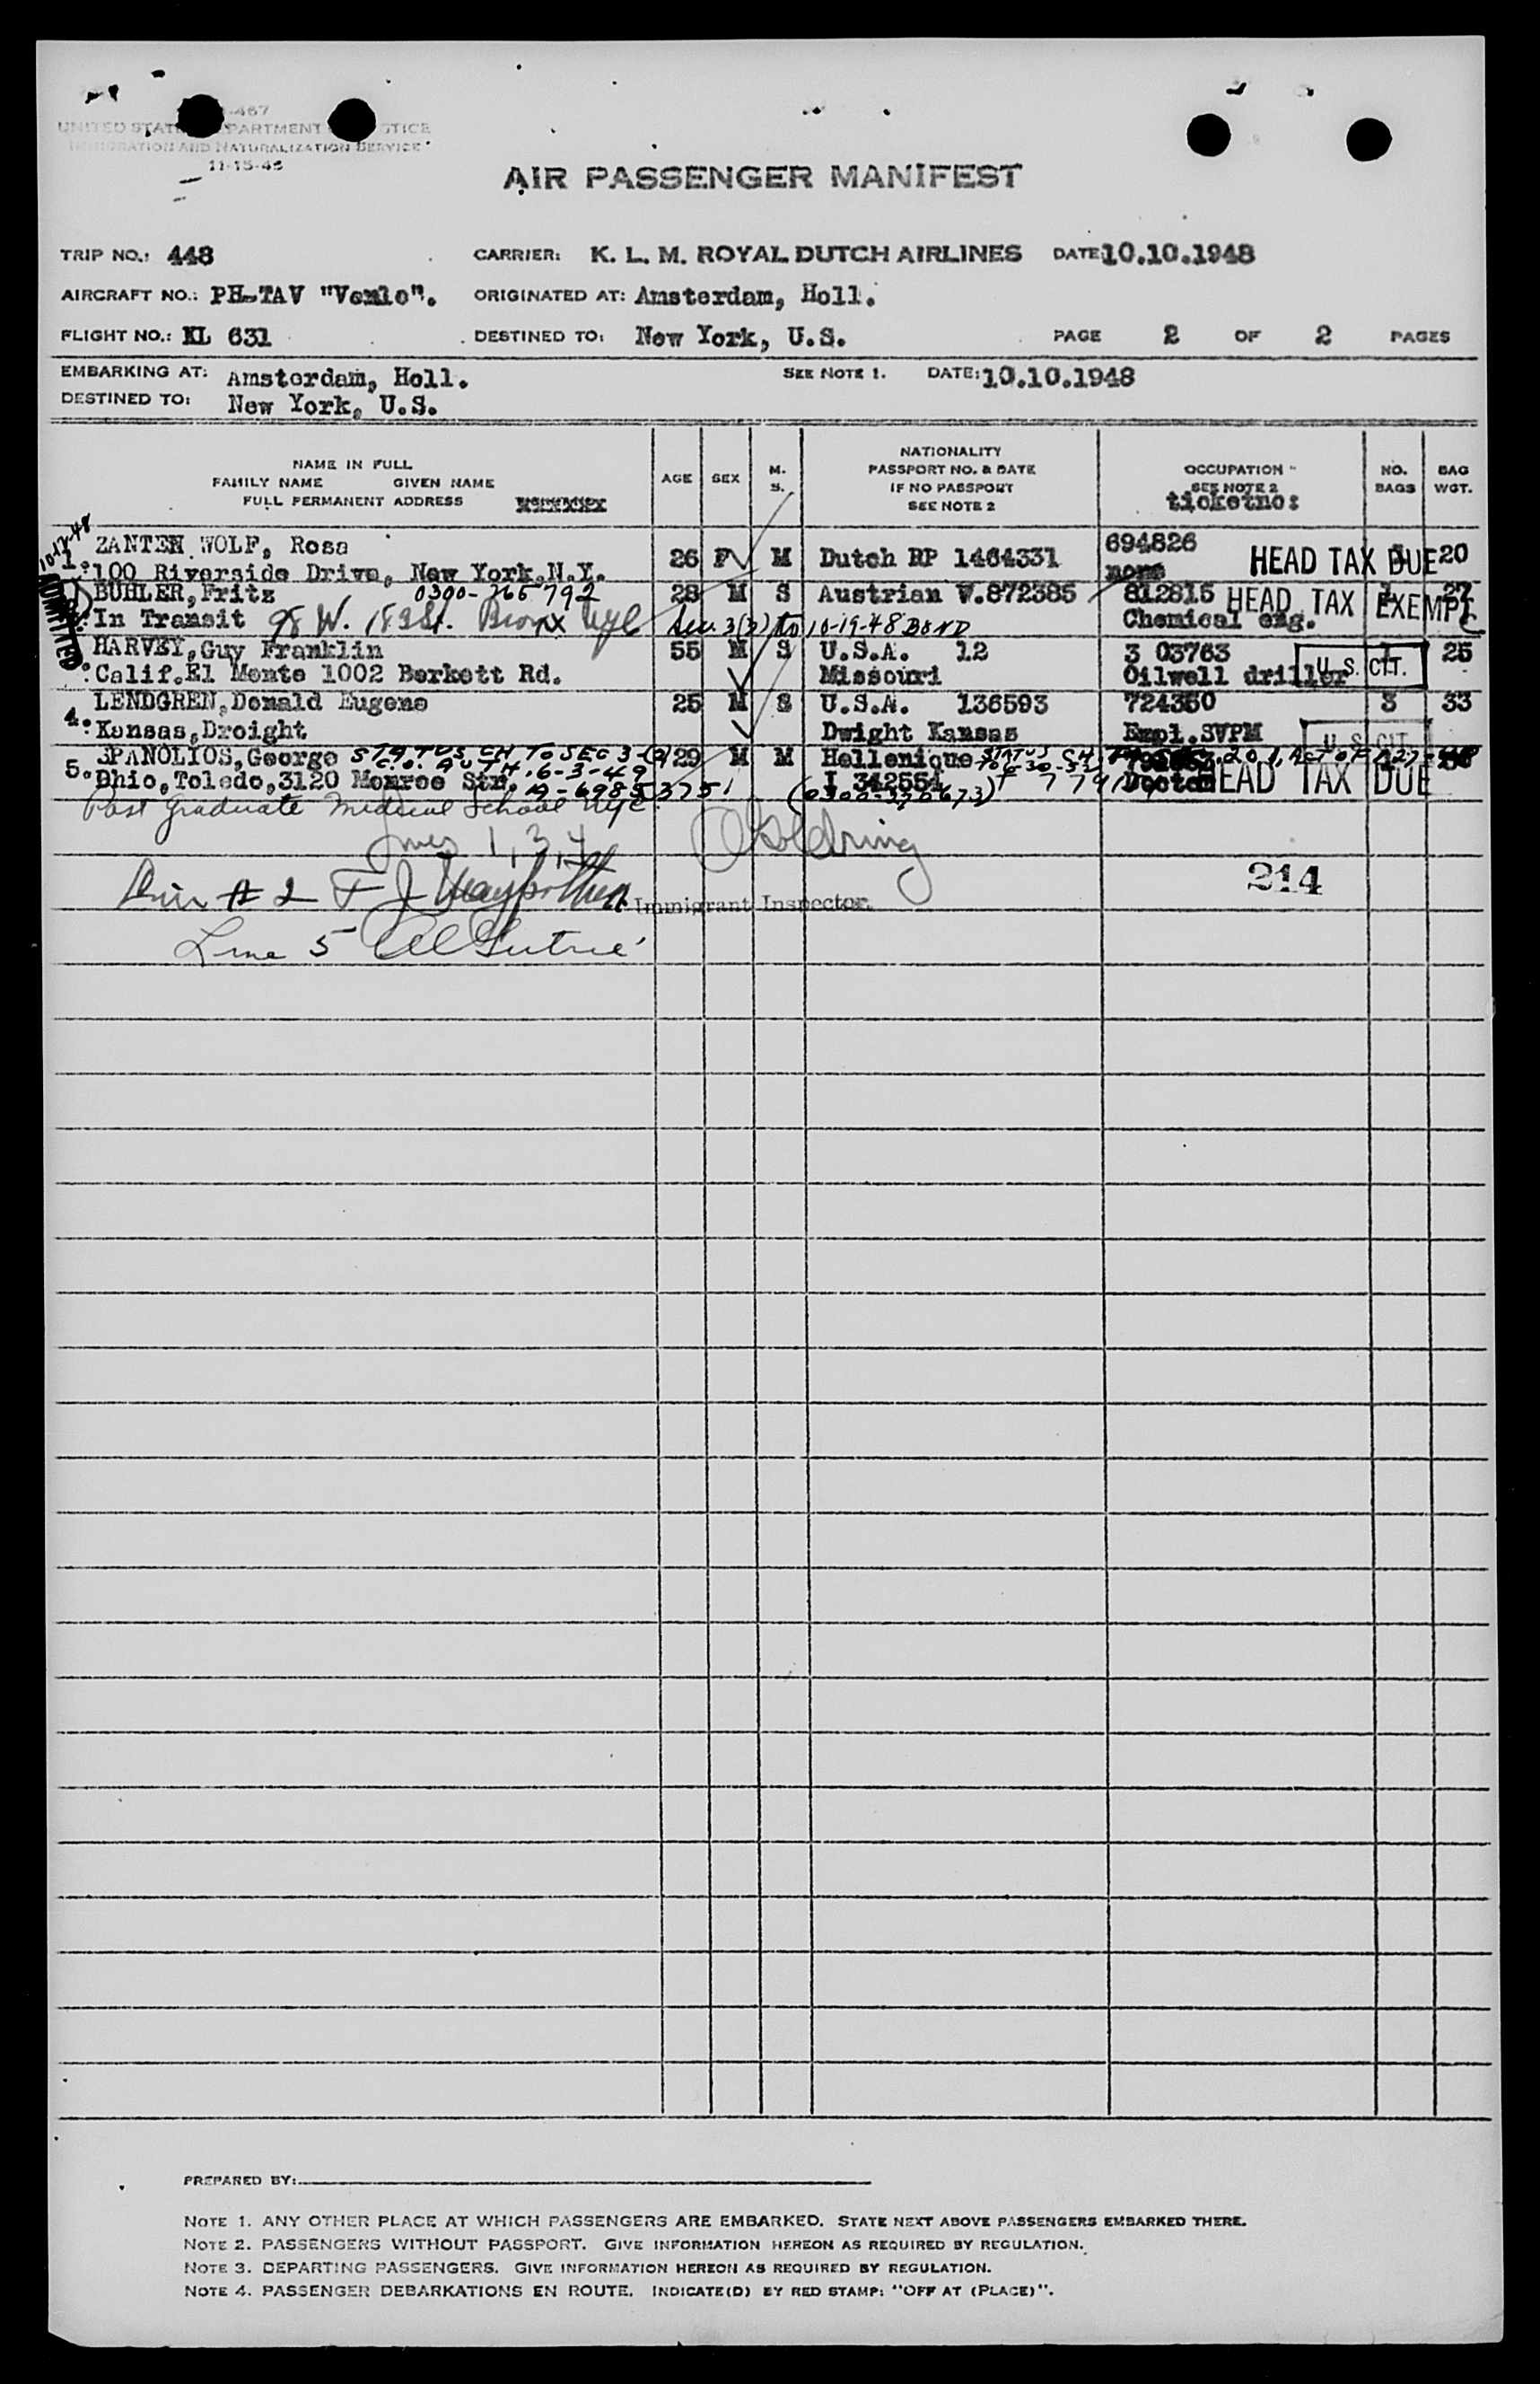 -467
UNITED STATES DEPARTMENT JUSTICE
IMMIGRATION AND NATURALIZATION SERVICE
11-15-45
AIR PASSENGER MANIFEST
TRIP NO.: 448 CARRIER: K. L. M. ROYAL DUTCH AIRLINES DATE: 10.10.1948
AIRCRAFT NO.: PH-TAV "Venlo". ORIGINATED AT: Amsterdam, Holl.
FLIGHT NO.: KL 631 DESTINED TO: New York, U.S. PAGE 2 OF 2 PAGES
EMBARKING AT: Amsterdam, Holl. SEE NOTE 1. DATE: 10.10.1948
DESTINED TO: New York, U.S.
NAME IN FULL
FAMILY NAME GIVEN NAME
FULL PERMANENT ADDRESS
AGE SEX M. S.
NATIONALITY
PASSPORT NO. & DATE
IF NO PASSPORT
SEE NOTE 2
OCCUPATION
SEE NOTE 2
ticketno:
NO. BAGS
BAG WGT.
10-12-48
ADMITTED
1. ZANTEN WOLF, Rosa 26 F M Dutch RP 1464331 694826 HEAD TAX DUE 20
100 Riverside Drive, New York.N.Y. none
BUHLER, Fritz 0300-265792 28 M S Austrian W.872385 812815 HEAD TAX EXEMPT 27
In Transit 98 W. 183 St. Bronx NYC Sec. 3(3) to 10-19-48 BOND Chemical eng.
HARVEY, Guy Franklin 55 M S U.S.A. 12 3 03763 U.S. CIT. 1 25
Calif.El Monte 1002 Berkett Rd. Missouri Oilwell driller
LENDGREN, Donald Eugene 25 M S U.S.A. 136593 724350 3 33
4. Kansas, Droight Dwight Kansas Empl.SVPM U.S. CIT.
SPANOLIOS, George STATUS CH TO SEC 3-(2) 29 M M Hellenique STATUS CH
C.O. AUTH. 6-3-49
5. Ohio, Toledo, 3120 Monroe Str. A-6985375 I 342554 (0300-320673) Doctor HEAD TAX DUE
Post Graduate Medical School NYC
Lines 1, 3, 4 Goldring
Line #2 F J
Immigrant Inspector.
214
Line 5
PREPARED BY:
NOTE 1. ANY OTHER PLACE AT WHICH PASSENGERS ARE EMBARKED. STATE NEXT ABOVE PASSENGERS EMBARKED THERE.
NOTE 2. PASSENGERS WITHOUT PASSPORT. GIVE INFORMATION HEREON AS REQUIRED BY REGULATION.
NOTE 3. DEPARTING PASSENGERS. GIVE INFORMATION HEREON AS REQUIRED BY REGULATION.
NOTE 4. PASSENGER DEBARKATIONS EN ROUTE. INDICATE(D) BY RED STAMP: "OFF AT (PLACE)".